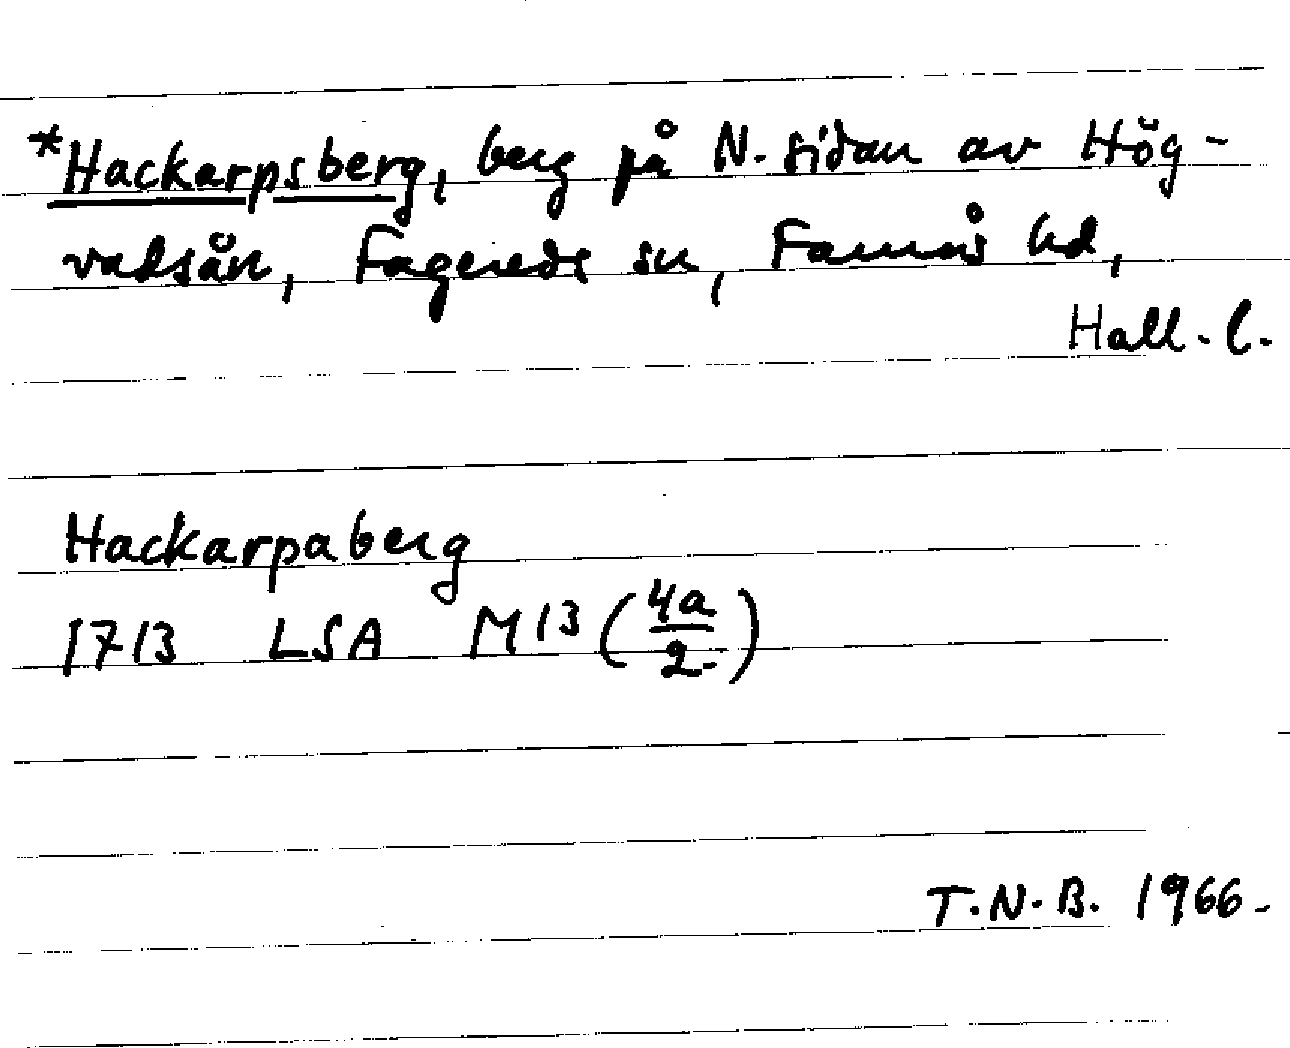 *Hackarpsberg, berg på N. sidan av Hög-
vadsån, Fagereds sn, Faurås hd,
Hall. l.
Hackarpaberg
1713 LSA M13 (4a/2)
T.N.B. 1966.